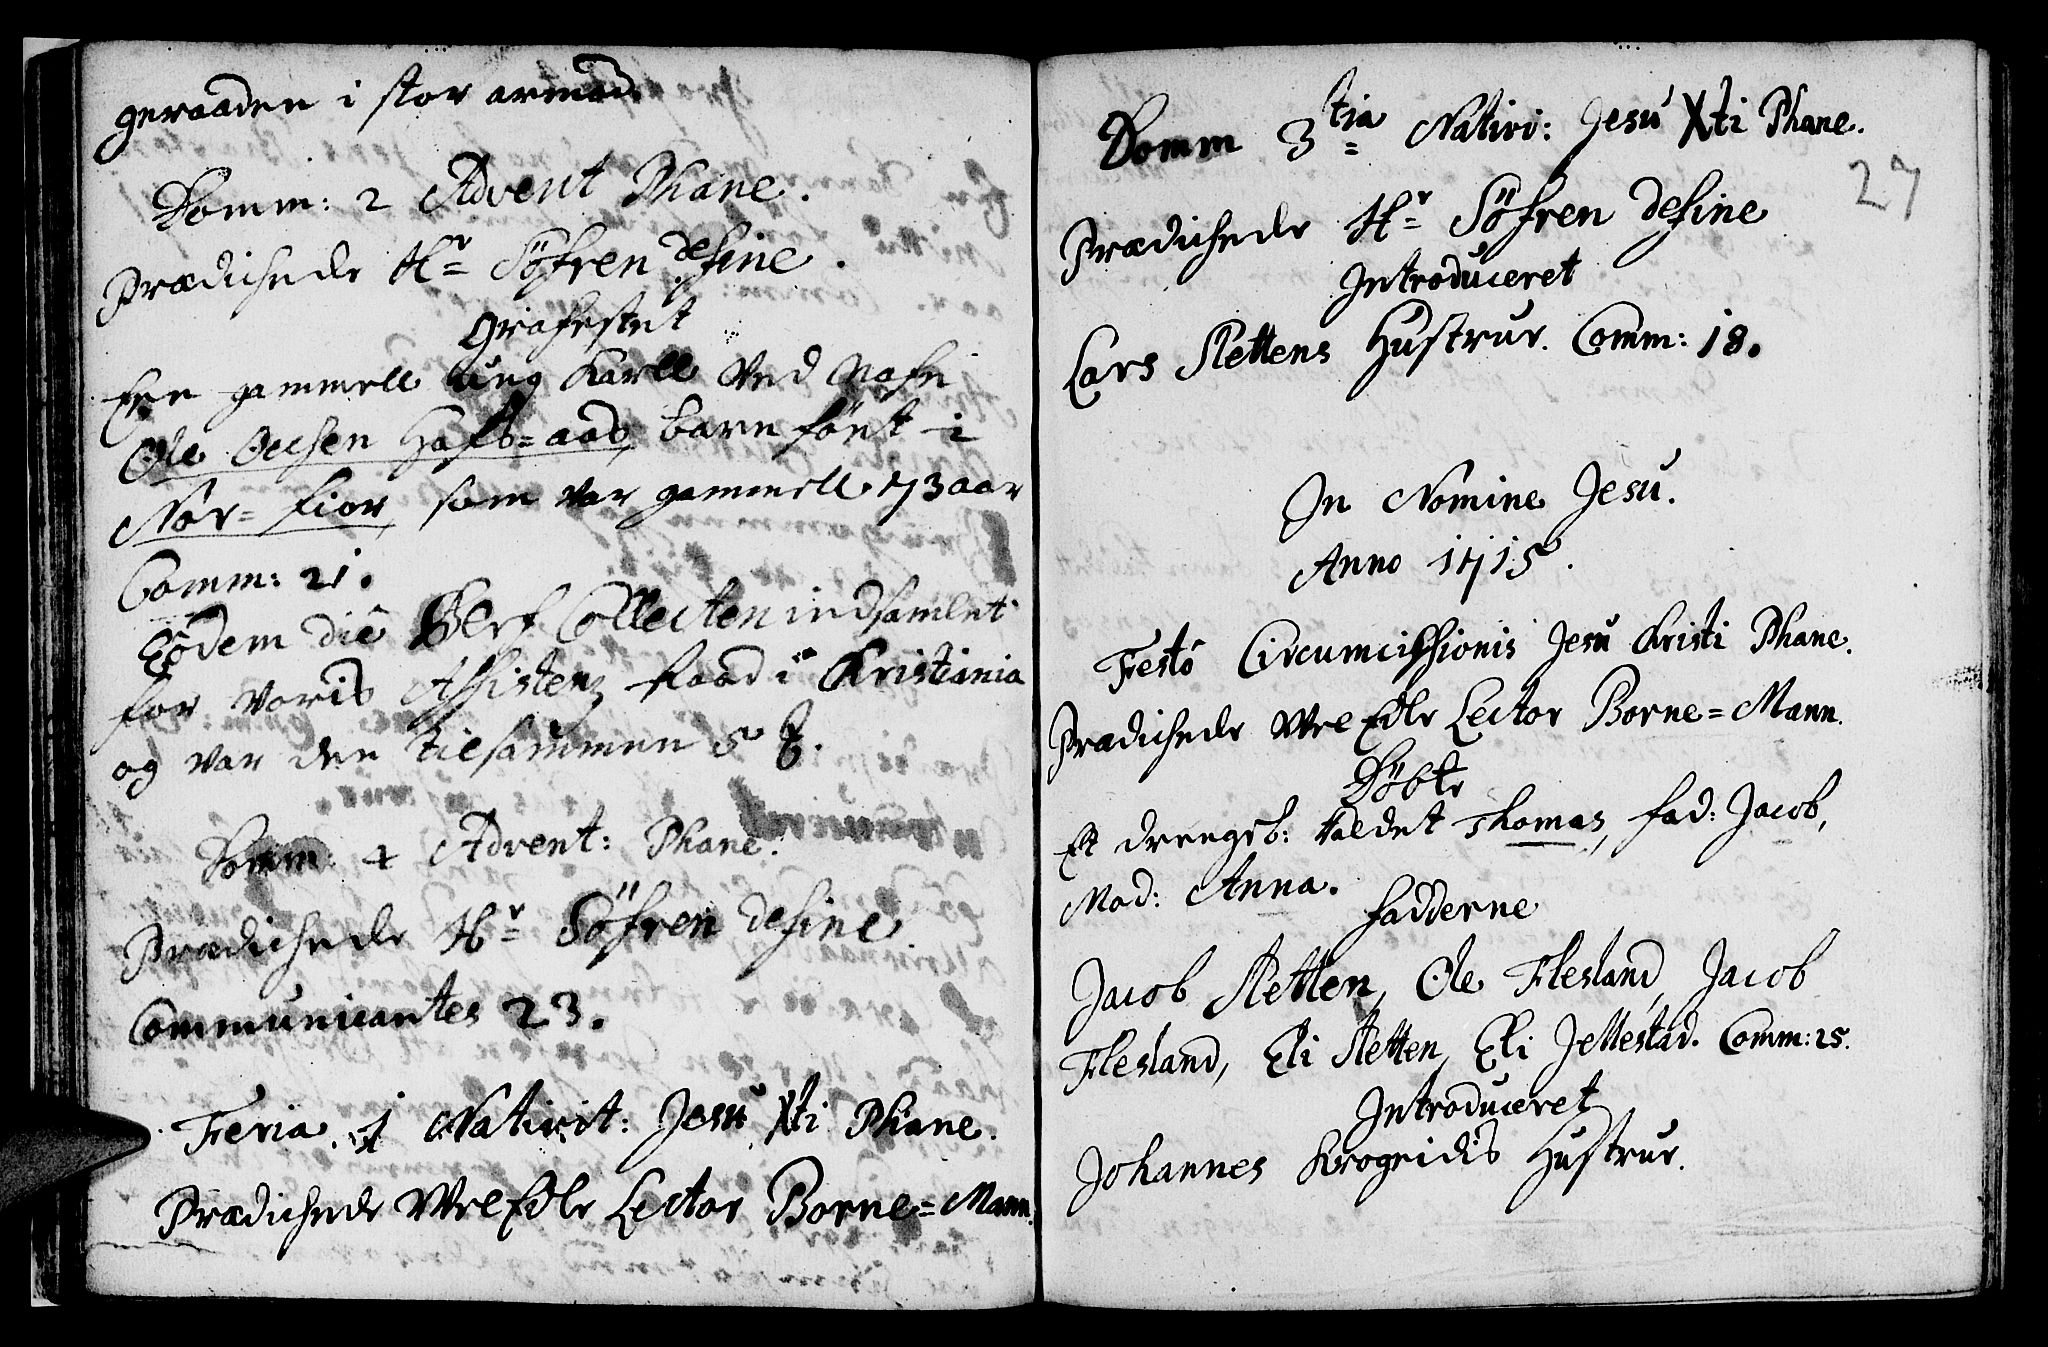 geraaden i stor armod.
Domm: 2 Advent Phane.
Prædichede Hr Söfren define.
Grafestet
Een gammell ung Karll ved Nafn
Ole Olsen Hafs=aas, barnfönt i
Nor=fior, som var gammell 73 aar
Comm: 21.
Eodem die blef Collecten indsamlet
for voris Assistentz Raad i Kristiania
og var den tilsammen 5
Domm: 4 Advent: Phane.
Prædichede Hr Söfren define.
Communicantes 23.
Feria 1 Nativit: Jesu Xti Phane.
Prædichede WelEdle Lector Borne=Mann.
Domm 3tia Nativi: Jesu Xti Phane.
27
Prædichede Hr Söfren define
Introduceret
Lars Slettens Hustrue. Comm: 18.
In Nomine Jesu.
Anno 1715.
Festo Circumcisionis Jesu Kristi Phane.
Prædichede WelEdle Lector Borne=Mann.
Döbte
Et drengeb: kaldet Thomas, fad: Jacob,
Mod: Anna.
Fadderne
Jacob Sletten, Ole Flesland, Jacob
Flesland, Eli Sletten, Eli Jellestad. Comm: 25.
Introduceret
Johannes Krogeidis Hustrue.